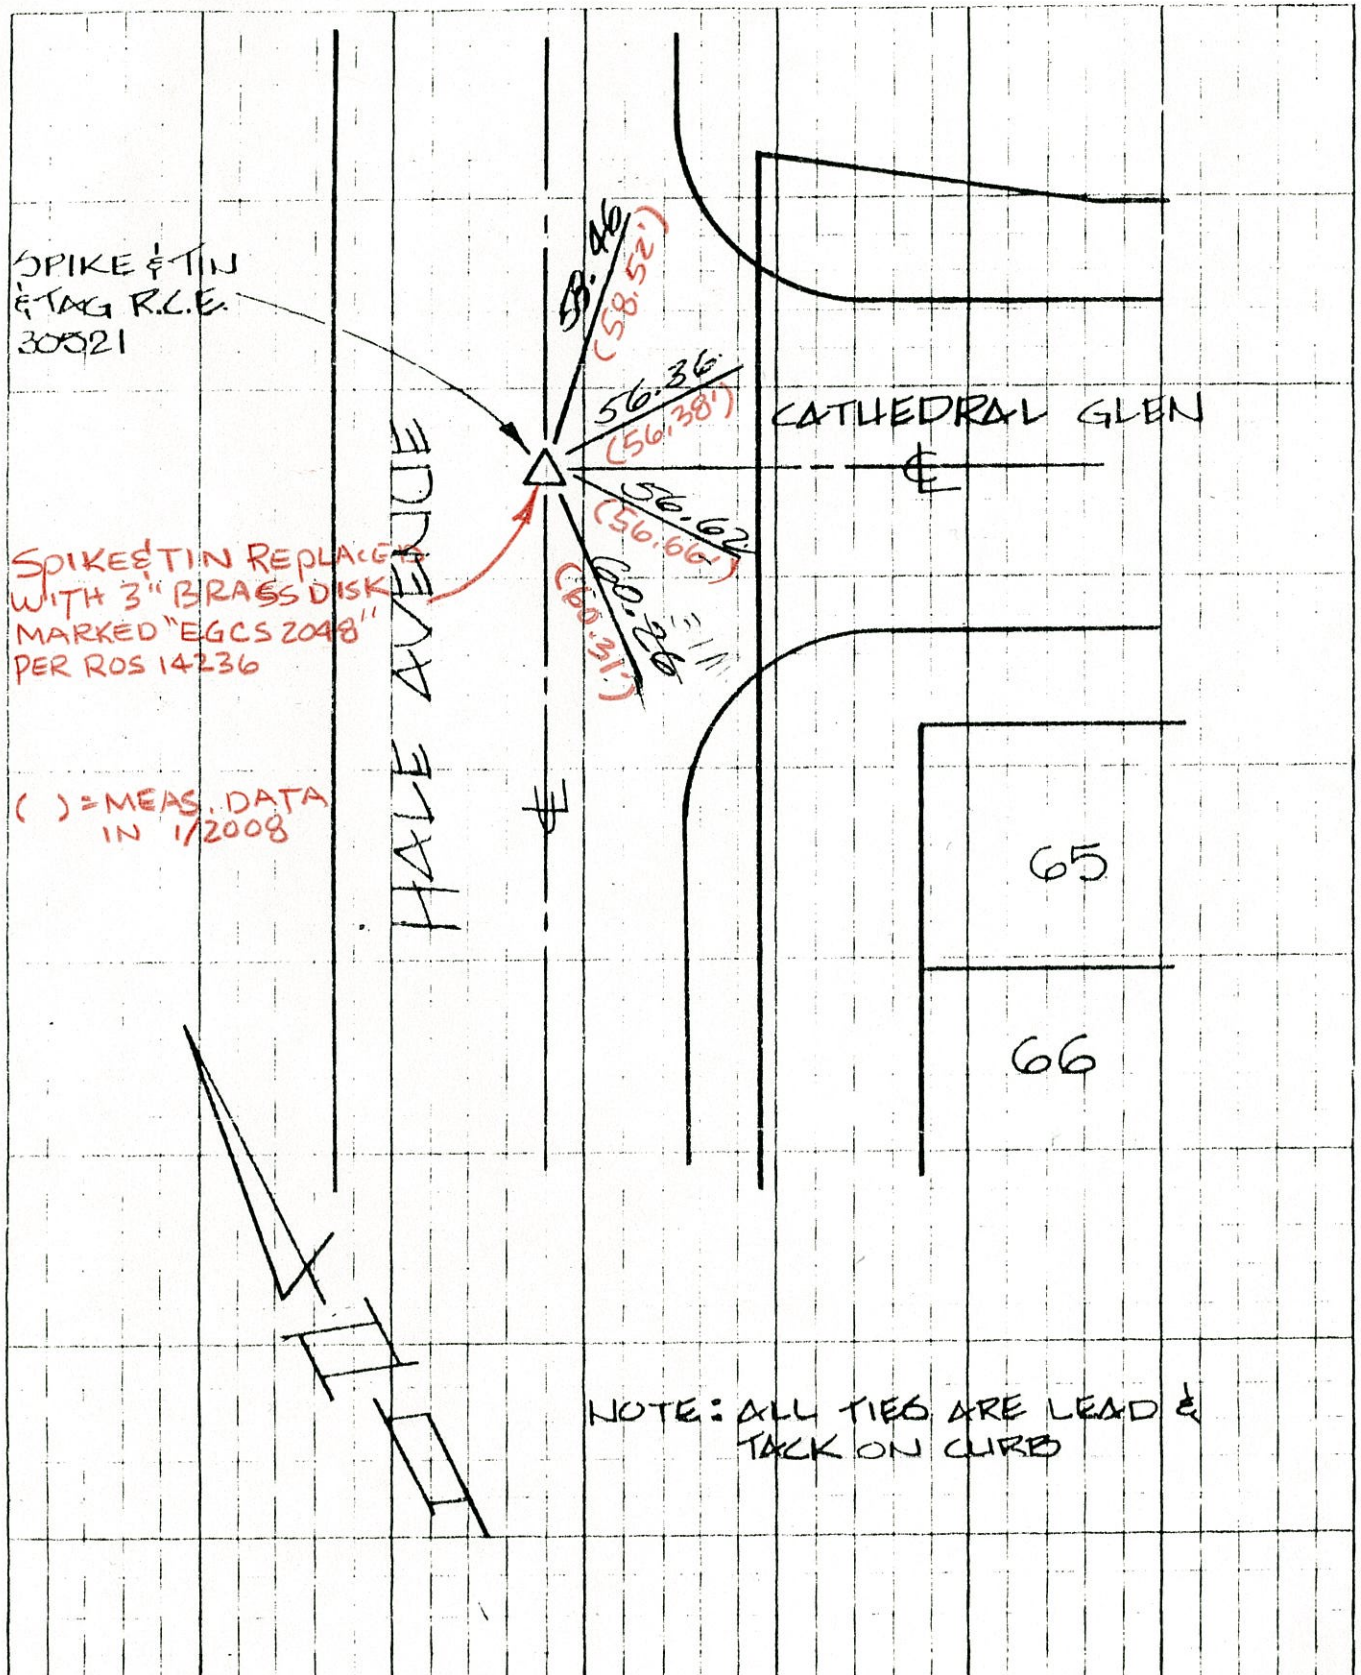 SPIKE & TIN
& TAG R.C.E.
30521
58.46
(58.52')
56.36
(56.38')
CATHEDRAL GLEN
℄
56.62
(56.66')
60.26
(60.31')
SPIKE & TIN REPLACED
WITH 3" BRASS DISK
MARKED "EGCS 2048"
PER ROS 14236
HALE AVENUE
( ) = MEAS. DATA
IN 1/2008
℄
65
66
NOTE: ALL TIES ARE LEAD &
TACK ON CURB